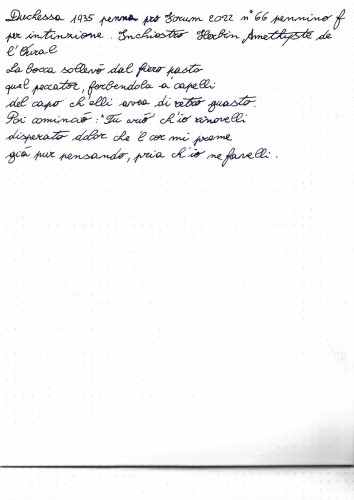 Duchessa 1935 penna pro Forum 2022 n° 66 pennino f
per intinzione. Inchiostro Herbin Amethyste de
l'Oural
La bocca sollevò dal fiero pasto
quel peccator, forbendola a' capelli
del capo ch'elli avea di retro guasto.
Poi cominciò: "Tu vuò ch'io rinovelli
disperato dolor che 'l cor mi preme
già pur pensando, pria ch'io ne favelli.